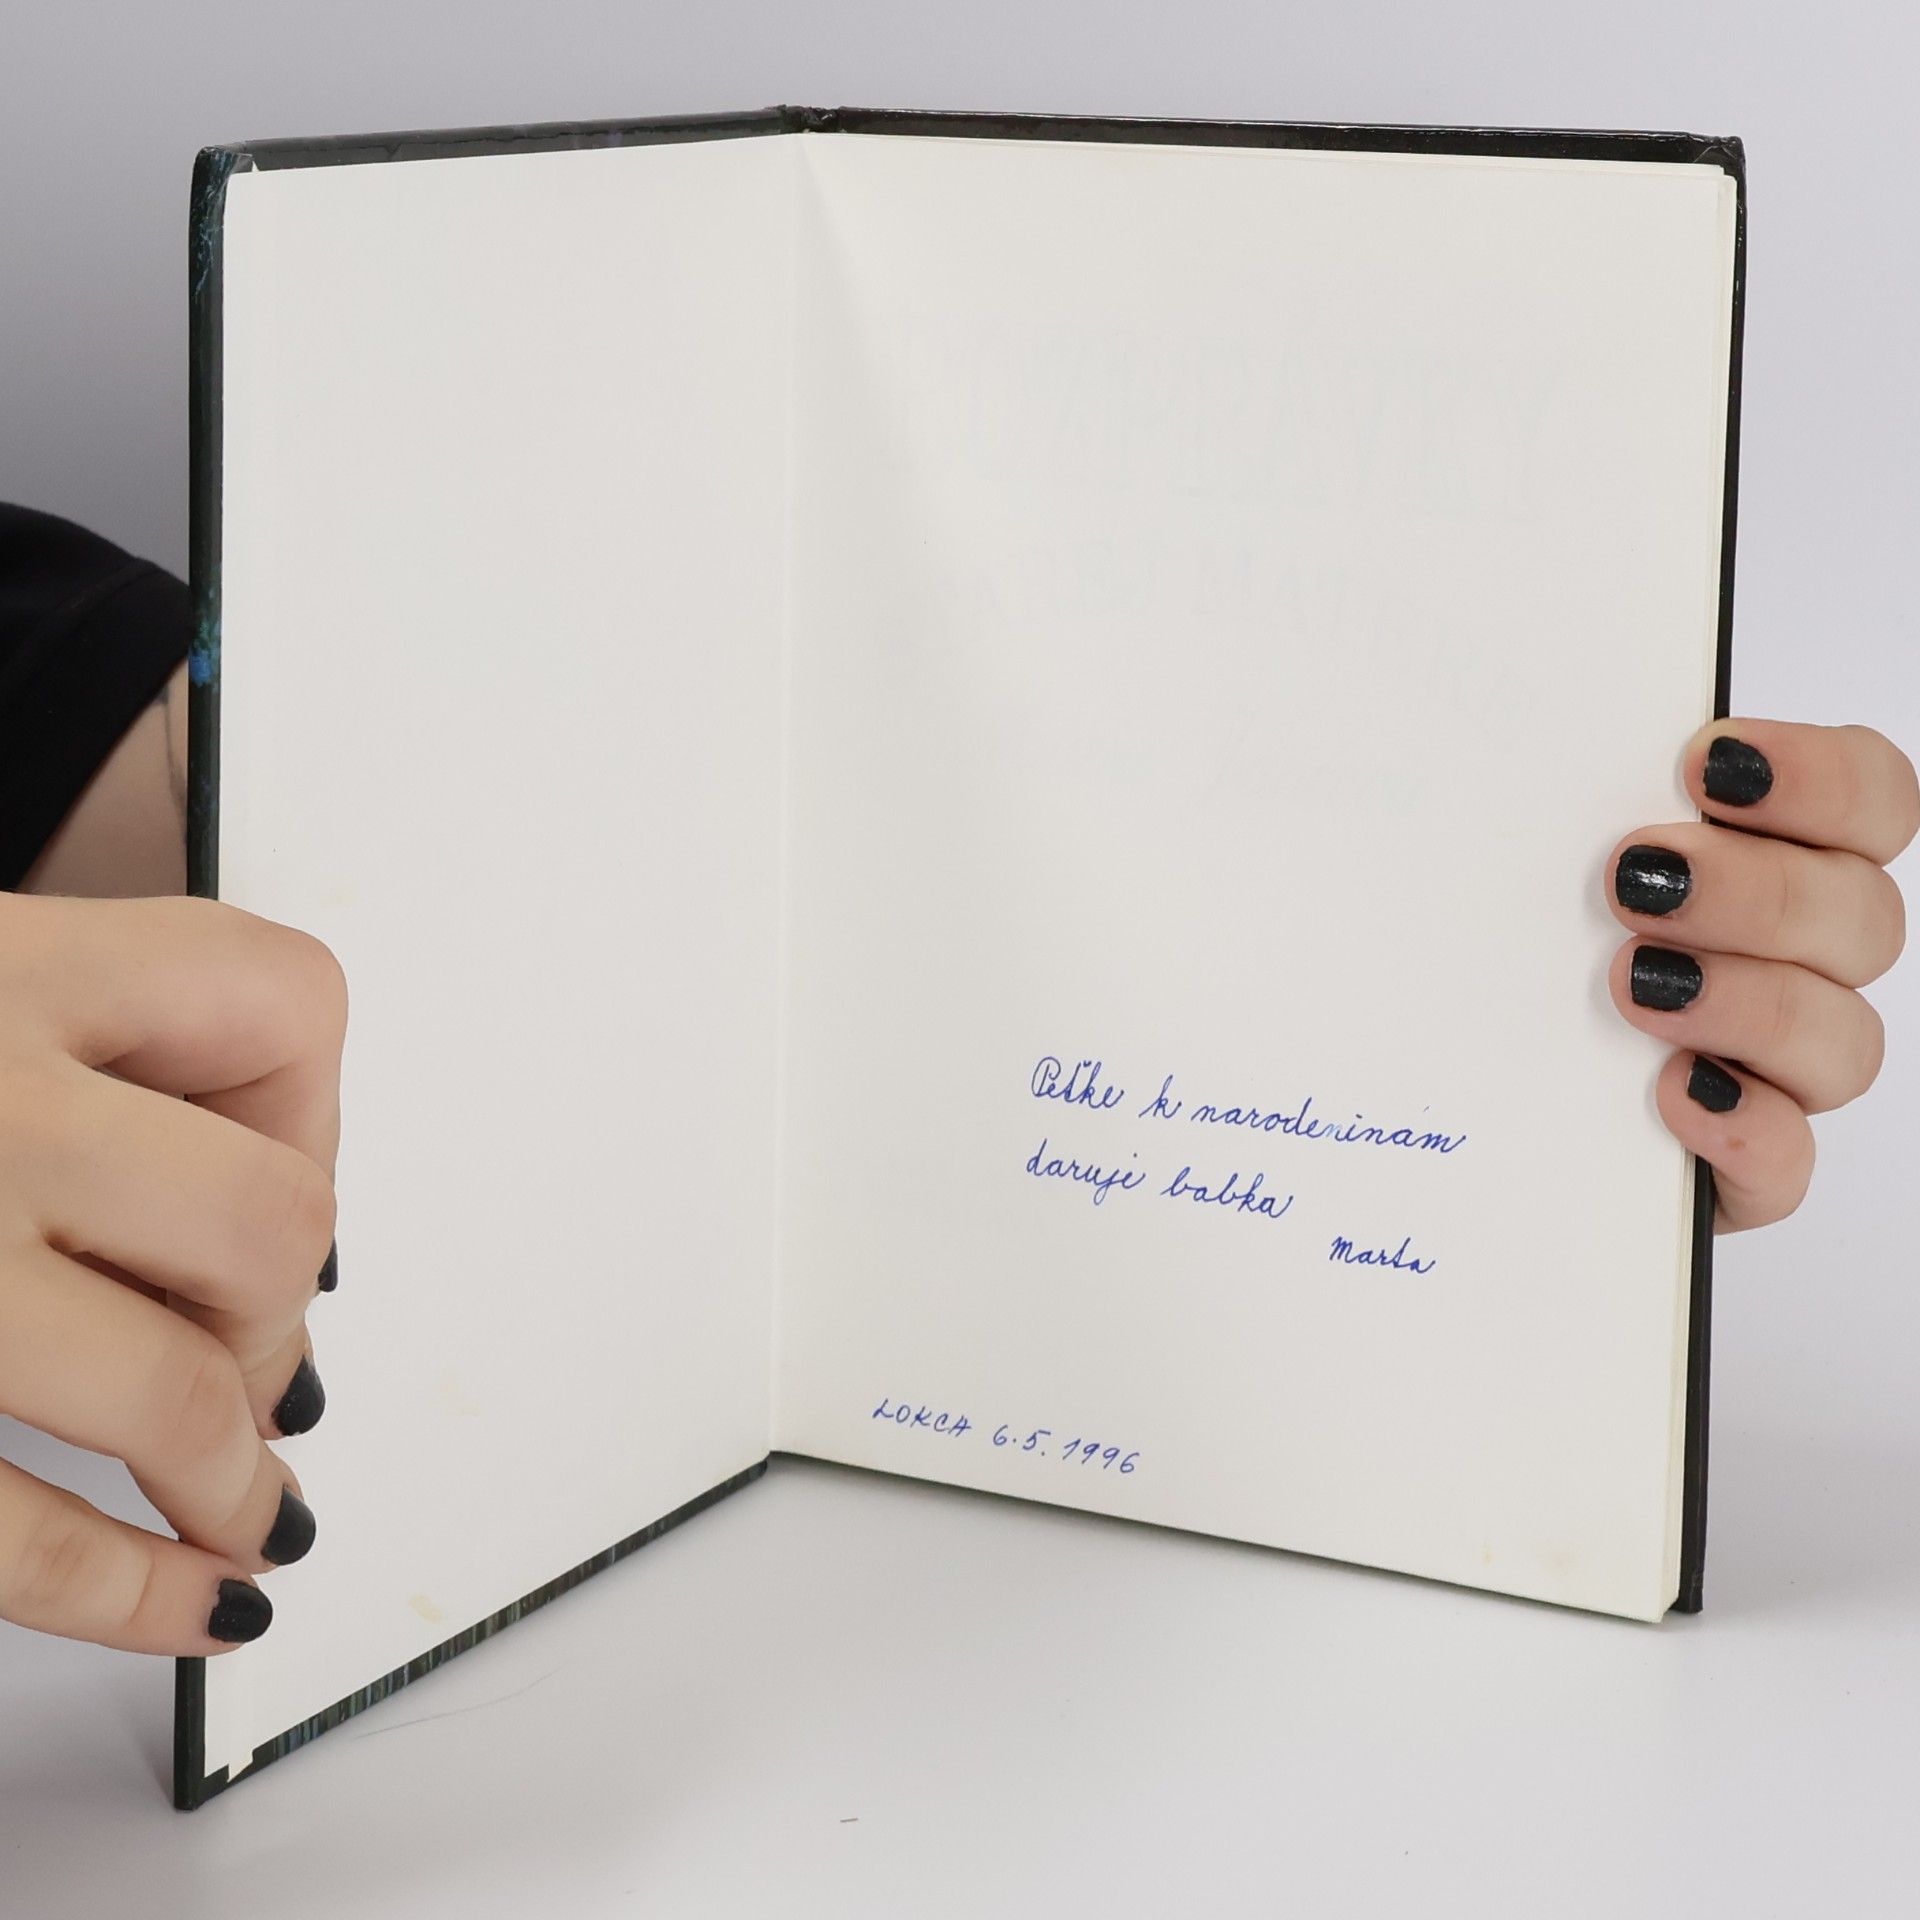 Peťke k narodeninám
daruje babka
Marta
LOKCA 6.5.1996